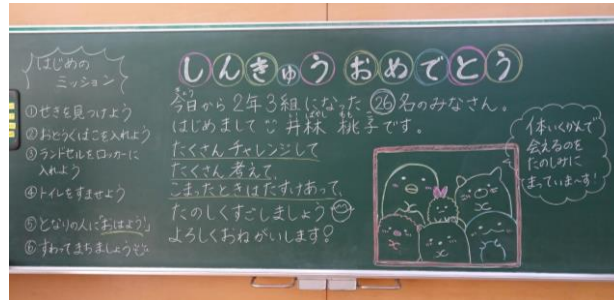 はじめの
ミッション
①せきを見つけよう
②おどうぐばこを入れよう
③ランドセルをロッカーに
入れよう
④トイレをすませよう
⑤となりの人に「おはよう!」
⑥すわってまちましょう
しんきゅう おめでとう
きょう
今日から2年3組になった㉖名のみなさん。
はじめまして 井林 桃子です。
たくさんチャレンジして
たくさん 考えて、
こまったときはたすけあって、
たのしくすごしましょう
よろしくおねがいします!
体いくかんで
会えるのを
たのしみに
まっていま~す!